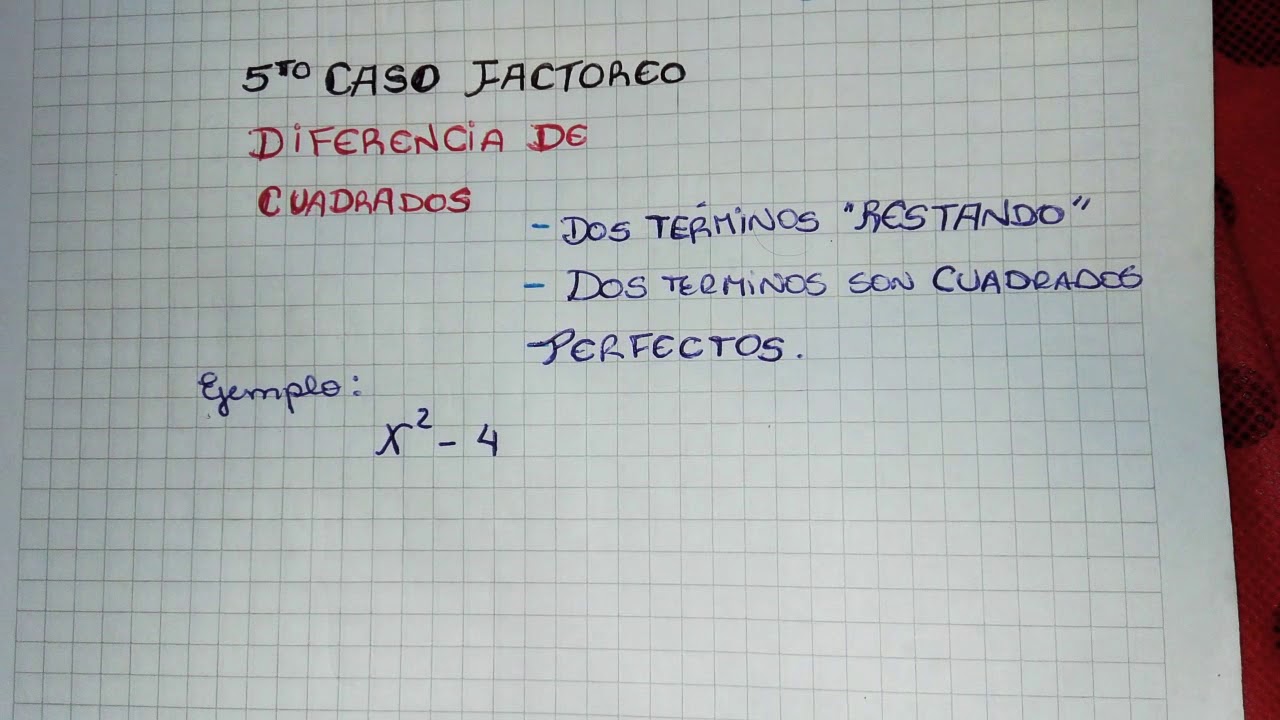 5TO CASO FACTOREO
DIFERENCIA DE
CUADRADOS
- DOS TÉRMINOS "RESTANDO"
- DOS TERMINOS SON CUADRADOS
PERFECTOS.
Ejemplo:
x² - 4